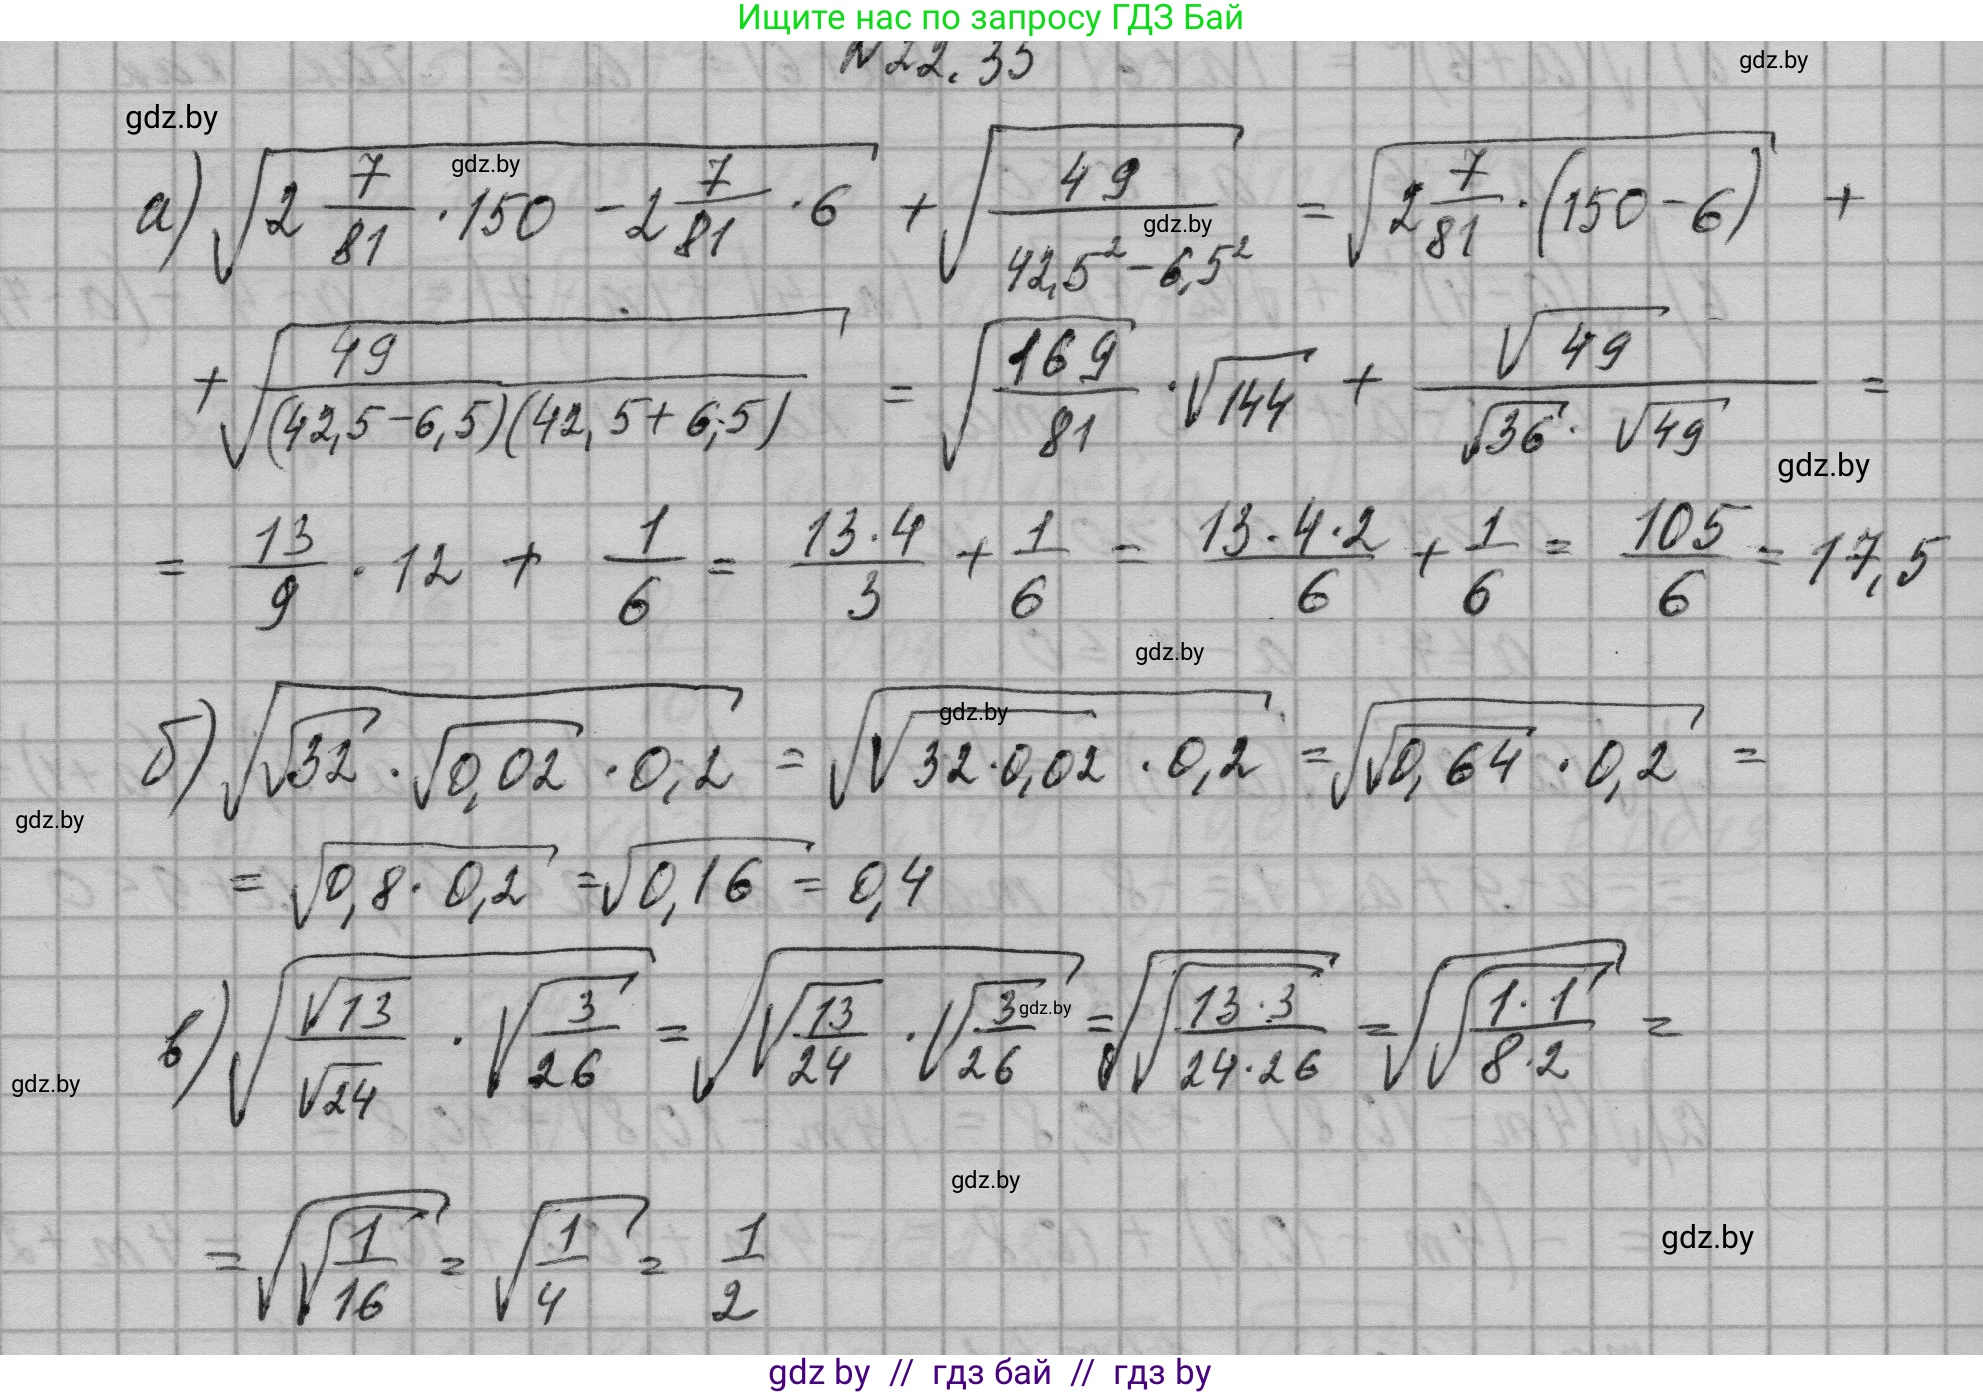 Ищите нас по запросу ГДЗ Бай
N 22. 35
gdz.by
gdz.by
а) √(2 7/81 · 150 − 2 7/81 · 6) + √(49/(42,5² − 6,5²)) = √(2 7/81 · (150 − 6)) +
gdz.by
gdz.by
+ √(49/((42,5 − 6,5)(42,5 + 6,5))) = √(169/81) · √144 + √49/(√36 · √49) =
gdz.by
= 13/9 · 12 + 1/6 = 13·4/3 + 1/6 = 13·4·2/6 + 1/6 = 105/6 = 17,5
gdz.by
б) √(√32 · √0,02 · 0,2) = √(√(32·0,02) · 0,2) = √(√0,64 · 0,2) =
gdz.by
gdz.by
= √(0,8 · 0,2) = √0,16 = 0,4
в) √(√13/√24 · √(3/26)) = √(√(13/24) · √(3/26)) = √√(13·3/(24·26)) = √√(1·1/(8·2)) =
gdz.by
gdz.by
gdz.by
= √√(1/16) = √(1/4) = 1/2
gdz.by
gdz by // гдз бай // гдз by